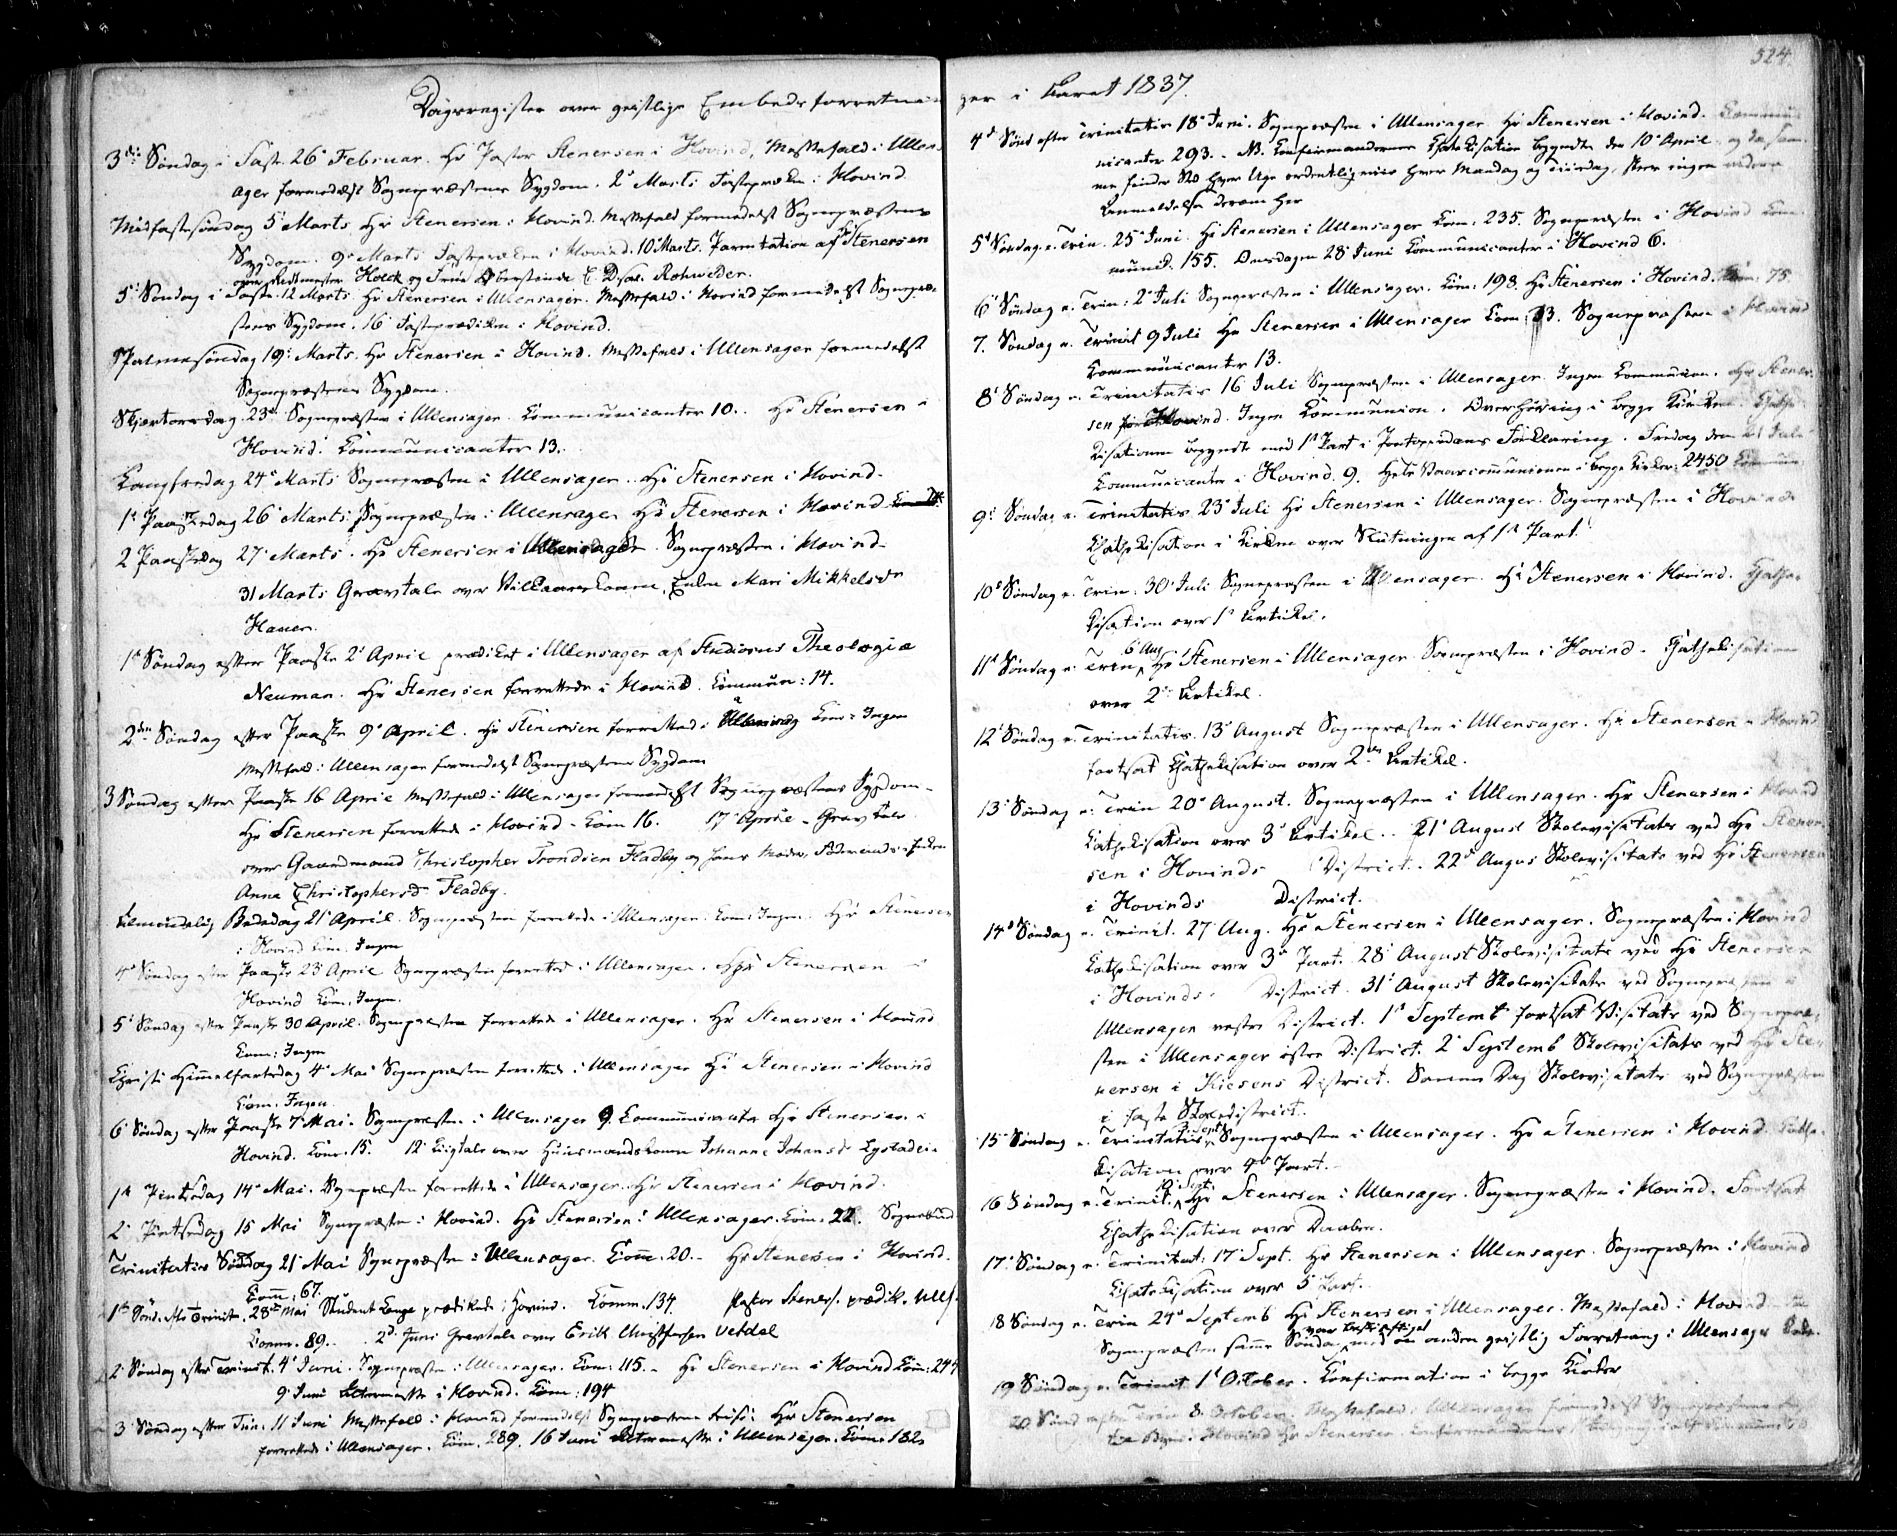 524
Dagsregister over geistlige Embedsforretnin
3die Søndag i Faste 26d Februar. Hr Pastor Stenersen i Hovind, Messefald i Ullens
ager formedelst Sognepræstens Sygdom. 2d Marts Fasteprædiken i Hovind
Midfastesøndag 5d Marts Hr Stenersen i Hovind. Messefald formedelst Sognepræstens
Sygdom. 9d Marts Fasteprædiken i Hovind. 10d Marts. Parentation af Hr Stenersen
over Rittmester Holck og Frue Oberstinde Rohweder.
5d Søndag i Faste 12 Marts. Hr Stenersen i Ullensager. Messefald i Hovind formedelst Sognepræ-
stens Sygdom. 16d Fasteprædiken i Hovind.
Palmesøndag 19d Marts. Hr Stenersen i Hovind. Messefald i Ullensager formedelst
Sognepræstens Sygdom.
Skjærtorsdag 23d Sognepræsten i Ullensager. Communicanter 10. Hr Stenersen i
Hovind. Communicanter 13.
Langfredag 24d Marts Sognepræsten i Ullensager. Hr Stenersen i Hovind.
1d Paaskedag 26d Marts. Sognepræsten i Ullensager Hr Stenersen i Hovind
2 Paaskedag 27d Marts. Hr Stenersen i Ullensager. Sognepræsten i Hovind
31 Marts Gravtale over Enken Mari Mikkelsdr
Hauer.
1d Søndag efter Paaske 2d April prædiket i Ullensager af Studiosus Theologiæ
Neuman. Hr Stenersen forrettede i Hovind. Commun: 14.
2den Søndag efter Paaske 9d April. Hr Stenersen forrettede i Com: Ingen
Messefald i Ullensager formedelst Sognepræstens Sygdom
3 Søndag efter Paaske 16 April Messefald i Ullensager formedelst Sognepræstens Sygdom.
Hr Stenersen forrettede i Hovind. Com 16. 17d April. Gravtale
over Gaardmand Christopher Trondsen Fladby og hans Moder, Enken
Anna Christophersd Fladby.
Almindelig Bededag 21d April. Sognepræsten forrettede i Ullensager. Com: Ingen. Hr Stenersen
i Hovind Com. Ingen
4d Søndag efter Paaske 23 April Sognepræsten forrettede i Ullensager. Hr Stenersen i
Hovind Com. Ingen.
5d Søndag efter Paaske 30 April. Sognepræsten forrettede i Ullensager. Hr Stenersen i Hovind
Com: Ingen
Christi Himmelfartsdag 4d Mai Sognepræsten forrettede i Ullensager Hr Stenersen i Hovind
Com. Ingen.
6 Søndag efter Paaske 7 Mai. Sognepræsten i Ullensager 9. Communicanter Hr Stenersen i
Hovind. Com. 15. 12d Ligtale over Huusmandskonen Johanne Johansd
1st Pintsedag 14d Mai. Sognepræsten forrettede i Ullensager. Hr Stenersen i Hovind.
2d Pintsedag 15 Mai Sognepræsten i Hovind. Hr Stenersen i Ullensager. Com. 22.
Trinitatis Søndag 21d Mai Sognepræsten i Ullensager. Com. 20. Hr Stenersen i Hovind.
Com. 67.
1ste Sønd. efter Trinit. 28de Mai Student Lange prædikede i Hovind. Comm. 134. Pastor Steners. prædik. Ulls.
Comm. 89. 2d Juni Gravtale over Erik Christophersen
2d Søndag efter Trinit. 4d Juni. Sognepræsten i Ullensager. Com: 115. Hr Stenersen i Hovind Com: 244
9d Juni Altermesse i Hovind. Com: 194
3 Søndag efter Trin. 11 Juni Messefald i Hovind formedelst Sognepræstens Hr Stenersen
forrettede i Ullensager. Com. 289. 16 Juni Altermesse i Ullensager. Com. 182
ger i Aaret 1837.
4d Sønd efter Trinitatis 18d Juni. Sognepræsten i Ullensager Hr Stenersen i Hovind. Commu-
nicanter 293. NB. Confirmandernes Cathekisation begyndte den 10d April og da sam-
me finder Sted hver Uge ordentligviis hver Mandag og Tiirsdag, skeer ingen videre
Anmeldelse derom her
5d Søndag e. Trin. 25d Juni. Hr Stenersen i Ullensager Com. 235. Sognepræsten i Hovind Com-
munic. 155. Onsdagen 28d Juni Communicanter i Hovind 6.
6d Søndag e. Trin: 2d Juli Sognepræsten i Ullensager. Com: 198. Hr Stenersen i Hovind. Com: 75
7. Søndag e. Trinit 9 Juli Hr Stenersen i Ullensager Com. Sognepræsten i Hovind
Communicanter 13.
8d Søndag e. Trinitatis 16 Juli Sognepræsten i Ullensager. Ingen Communion. Hr Stener-
sen Hovind. Ingen Communion. Overhøring i begge Kirkerne. Cathe-
kisationen begyndte med 1st Part i Pontoppidans Forklaring. Fredag den 21 Juli
Communicanter i Hovind. 9. Hele Vaarcommunionen i begge Kirker: 2450 Commun:
9d Søndag e. Trinitatis 23d Juli Hr Stenersen i Ullensager. Sognepræsten i Hovind
Cathekisation i Kirken over Slutningen af 1st Part.
10d Søndag e. Trin. 30d Juli Sognepræsten i Ullensager. Hr Stenersen i Hovind. Cathe-
kisation over 1st Artikel.
11d Søndag e. Trin. 6 Aug Hr Stenersen i Ullensager. Sognepræsten i Hovind. Cathekisation
over 2d Artikel.
12d Søndag e. Trinitatis. 13d August Sognepræsten i Ullensager. Hr Stenersen i Hovind
fortsat Cathekisation over 2den Artikel.
13d Søndag e. Trin 20d August. Sognepræsten i Ullensager. Hr Stenersen i Hovind
Cathekisation over 3d Artikel. 21d August Skolevisitats ved Hr Stener-
sen i Hovinds District. 22d August Skolevisitats ved Hr Stenersen
i Hovinds District.
14d Søndag e. Trinit. 27 Aug. Hr Stenersen i Ullensager. Sognepræsten i Hovind
Cathekisation over 3d Part. 28d August Skolevisitats ved Hr Stenersen
i Hovinds District. 31d August Skolevisitats ved Sognepræsten i
Ullensager vestre District. 1st Septemb fortsat Visitats ved Sognepræ-
sten i Ullensager østre District. 2d Septemb Skolevisitats ved Hr Ste-
nersen i Kiosens District. Samme Dag Skolevisitats ved Sognepræsten
i faste Skoledistrict.
15d Søndag e. Trinitatis 3 Sept Sognepræsten i Ullensager. Hr Stenersen i Hovind. Cathe-
kisation over 4d Part.
16 Søndag e. Trinit. 10 Sept. Hr Stenersen i Ullensager. Sognepræsten i Hovind. Fortsat
Cathekisation over Daaben.
17d Søndag e. Trinitat. 17d Sept. Hr Stenersen i Ullensager. Sognepræsten i Hovind
Cathekisation over 5 Part.
18 Søndag e. Trin 24d Septemb Hr Stenersen i Ullensager. Messefald i Hovind
Sognepræsten samme Søndag var beskjæftiget med en anden geistlig Forretning i Ullensager
19 Søndag e. Trinit 1st October. Confirmation i begge Kirker
20 Sønd efter Trin 8. October. Messefald i Ullensager formedelst Sognepræstens
Hovind Hr Stenersen. Confirmandernes